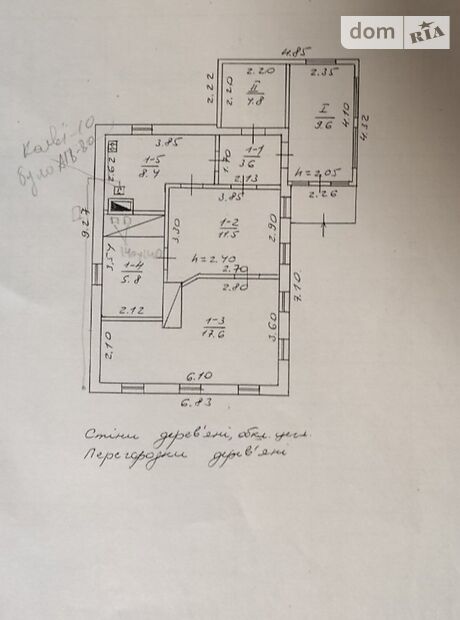 dom RIA
4.85
2.20
2.35
2.22
2.20
II
4.8
I
9.6
4.10
4.32
3.85
2.92
1-5
8.4
1.70
1-1
3.6
2.13
h=2.05
2.26
3.85
1-2
11.5
3.30
h=2.40
2.90
2.70
9.27
4.55
1-4
5.8
2.12
2.80
1-3
17.6
3.60
7.10
2.10
6.10
6.83
Стіни дерев'яні, обкл. цегл.
Перегородки дерев'яні